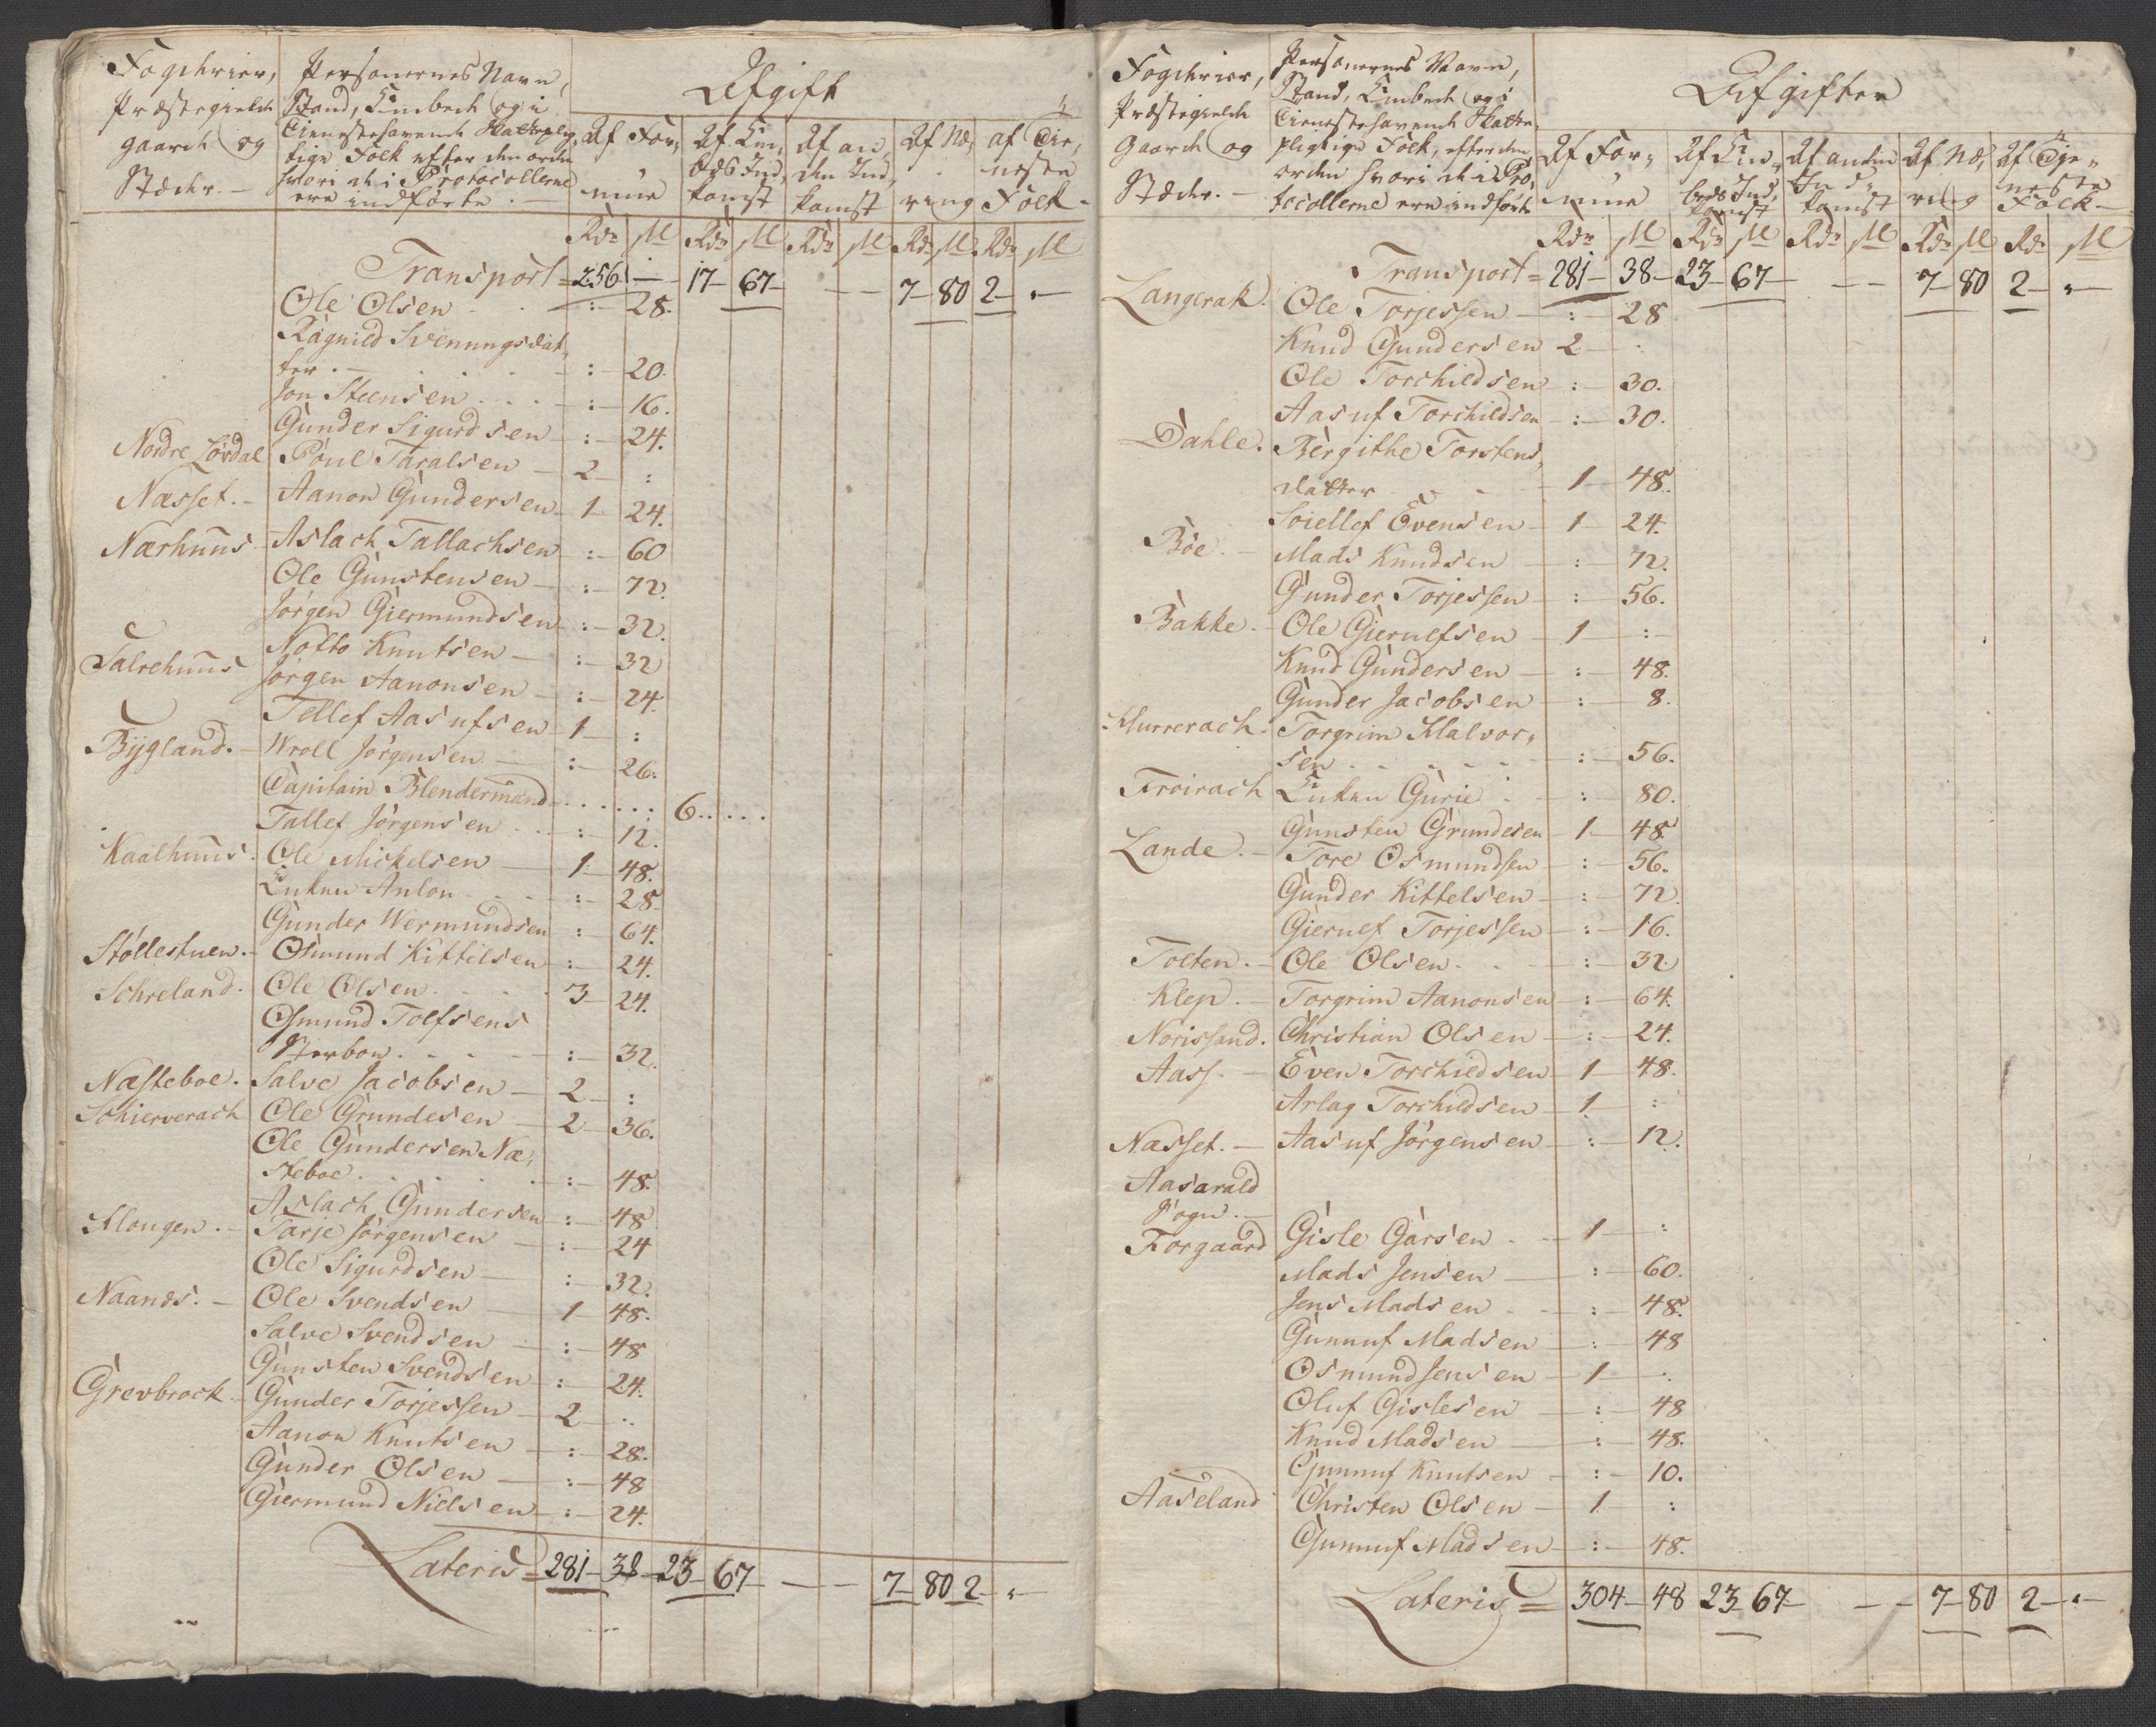 Fogderier, Præstegield gaard og Stæder. —
Personernes Navn, Stand, Embede og i Tienestehavende Skattepligtige Folk efter den orden hvori de i Protocollerne ere indførte. —
Afgift
Af Formue | Af Embeds Indkomst | Af anden Indkomst | Af Næring | af Tieneste Folk
Rdr | M | Rdr | M | Rdr | M | Rd | M | Rdr | M
Transport = 256 — 17 — 67 — — — 7 — 80 2 — " —
Ole Olsen . . : — 28.
Ragnild Svenungsdat,
ter . — . . . — : — 20.
Jon Steensen . . . — : — 16.
Gunder Sigurdsen — : — 24.
Nordre Lovdal Poul Taralsen — 2 — :
Nasset. — Aanon Gundersen — 1 — 24.
Narhuus — Aslach Tallachsen : — 60
Ole Gunstensen — : — 72.
Jørgen Giermundsen — : — 32.
Notto Knutsen — : — 32
Talrehuus Jørgen Aanonsen — : — 24.
Tellef Aasufsen — 1 — :
Bygland. — Wroll Jørgensen — : — 26.
Capitain Blendermand . . . . . . 6 . . . .
Tallef Jørgensen . . . : — 12.
Kaalhuus. Ole Mickelsen — 1 — 48.
Enken Anlou . . — : — 28.
Gunder Wermundsen : — 64.
Støllestuen. — Osmund Kittilsen — : — 24.
Schreland. Ole Olsen . . . . 3 — 24.
Osmund Tolfsens
Sterboe . . . . — : — 32.
Næsteboe. Salve Jacobsen — 2 — :
Schierverach Ole Grundesen — 2 — 36.
Ole Gundersen Næ,
steboe . . . . . : — 48.
Aslach Gundersen — : — 48
Klougen. — Tarje Jørgensen — : — 24
Ole Sigurdsen — : — 32.
Naands. — Ole Svendsen — 1 — 48.
Salve Svendsen — : — 48
Gunsten Svendsen — : — 24.
Grevbrock — Gunder Torjessen — 2 — :
Aanon Knutsen — : — 28.
Gunder Olsen — : — 48
Giermund Nielsen — : — 24.
Lateris = 281 — 38 — 23 — 67 — — — 7 — 80 2 — " —
Fogderier, Præstegield Gaard og Stæder. —
Personernes Navn, Stand, Embede og i Tienestehavende Skattepligtige Folk, efter den orden hvori de i Protocollerne ere indførte
Afgifter
Af Formue | Af Embeds Indkomst | Af anden Indkomst | Af Næring | Af Tieneste Folk —
Rdr | M | Rdr | M | Rdr | M | Rdr | M | Rdr | M
Transport = 281 — 38 — 23 — 67 — — — 7 — 80 2 — " —
Langerak. Ole Torjessen — : — 28
Knud Gundersen 2 — :
Ole Torchildsen — : — 30.
Aasuf Torchildsen — : — 30.
Dahle. Bergithe Torstens,
datter . . — — 1 — 48.
Soiellef Evensen — 1 — 24.
Bøe. — Mads Knudsen — : — 72.
Gunder Torjessen — : — 56.
Bakke. — Ole Giernefsen — 1 — : —
Knud Gundersen — : — 48.
Gunder Jacobsen — : — 8.
Murrerach. Torgrim Halvor,
sen . . . . . — : — 56.
Froirach Enken Gurie . — : — 80.
Gunsten Grundesen — 1 — 48.
Lande. — Tore Osmundsen — : — 56.
Gunder Kittelsen — : — 72.
Giernef Torjessen — : — 16.
Tolten. — Ole Olsen . . — : — 32
Klep. — Torgrim Aanonsen — : — 64.
Norissand. Christian Olsen — : — 24.
Aass. — Even Torchildsen — 1 — 48.
Arlag Torchildsen — 1 — :
Nasset. — Aasuf Jørgensen — : — 12.
Aasarald
Sogn. —
Forgaard Gisle Garsen . — 1 — :
Mads Jensen — : — 60.
Jens Madsen . — : — 48.
Gunnuf Madsen — : — 48
Osmund Jensen — 1 — :
Oluf Gislesen — : — 48
Knud Madsen — : — 48.
Gunnuf Knutsen — : — 10.
Aaseland Christen Olsen — 1 — :
Gunnuf Madsen — : — 48.
Lateris = 304 — 48 23 — 67 — — — 7 — 80 2 — " —